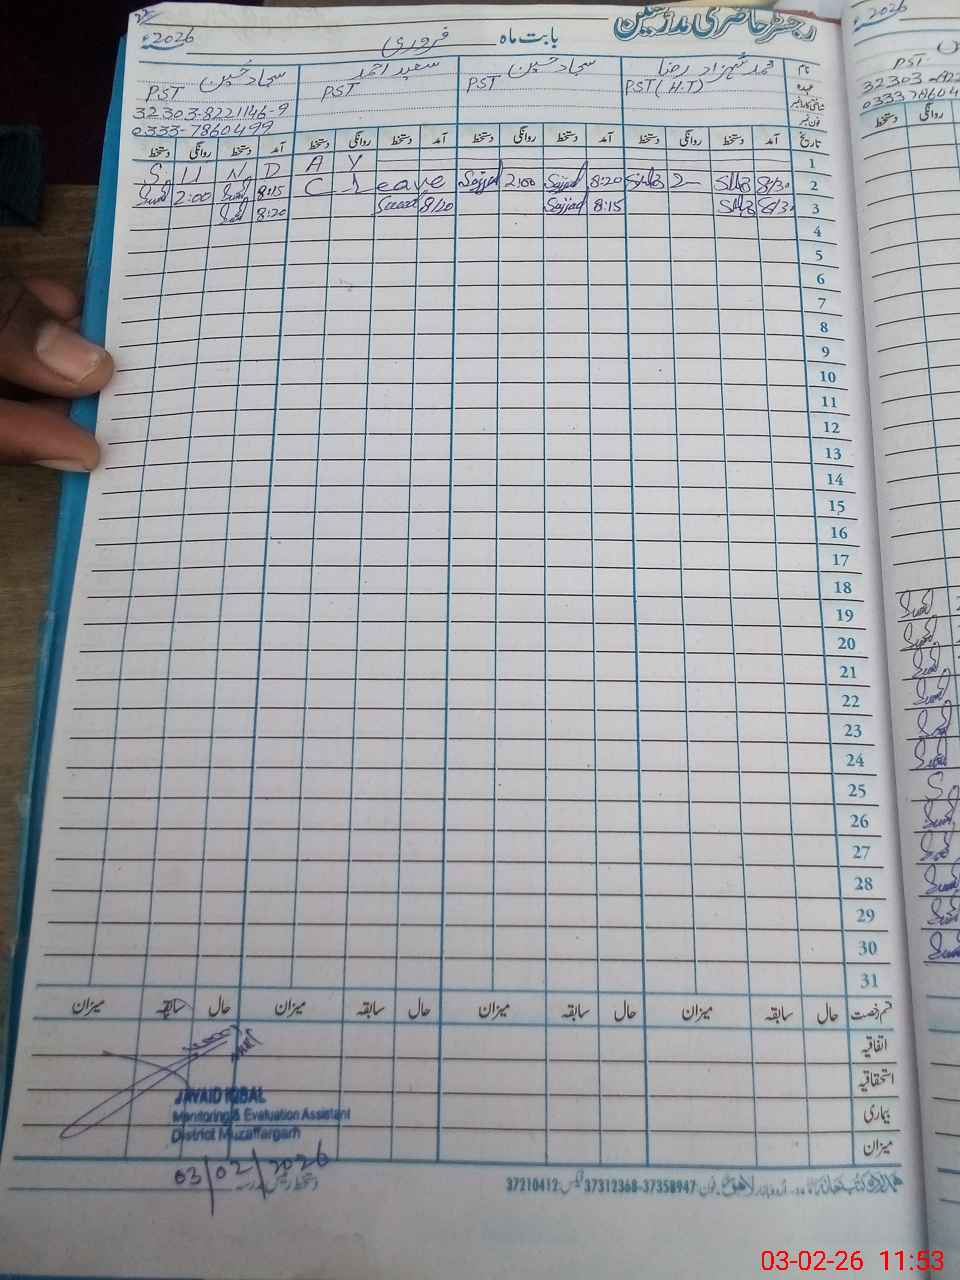 رجسٹر حاضری مدرسین
بابت ماہ فروری 2026ء
نام محمد شہزاد رضا سعید احمد سجاد حسین سجاد حسین
عہدہ PST (H.T) PST PST PST
شناختی کارڈ نمبر 32303-8221146-9
فون نمبر 0333-7860499
تاریخ آمد دستخط روانگی دستخط آمد دستخط روانگی دستخط آمد دستخط روانگی دستخط آمد دستخط روانگی دستخط
S U N D A Y 1
2:00 8:15 C-Leave Sajjad 2:00 Sajjad 8:20 2 8:30 2
8:20 8:20 Sajjad 8:15 8:30 3
4
5
6
7
8
9
10
11
12
13
14
15
16
17
18
19
20
21
22
23
24
25
26
27
28
29
30
31
قسم رخصت حال سابقہ میزان حال سابقہ میزان حال سابقہ میزان حال سابقہ میزان
اتفاقیہ
استحقاقیہ
بیماری
میزان
JAVAID IQBAL
Monitoring & Evaluation Assistant
District Muzaffargarh
03/02/2026
37210412 فیکس: 37312368-37358947 فون:
PST
0333 78604
دستخط روانگی
03-02-26 11:53